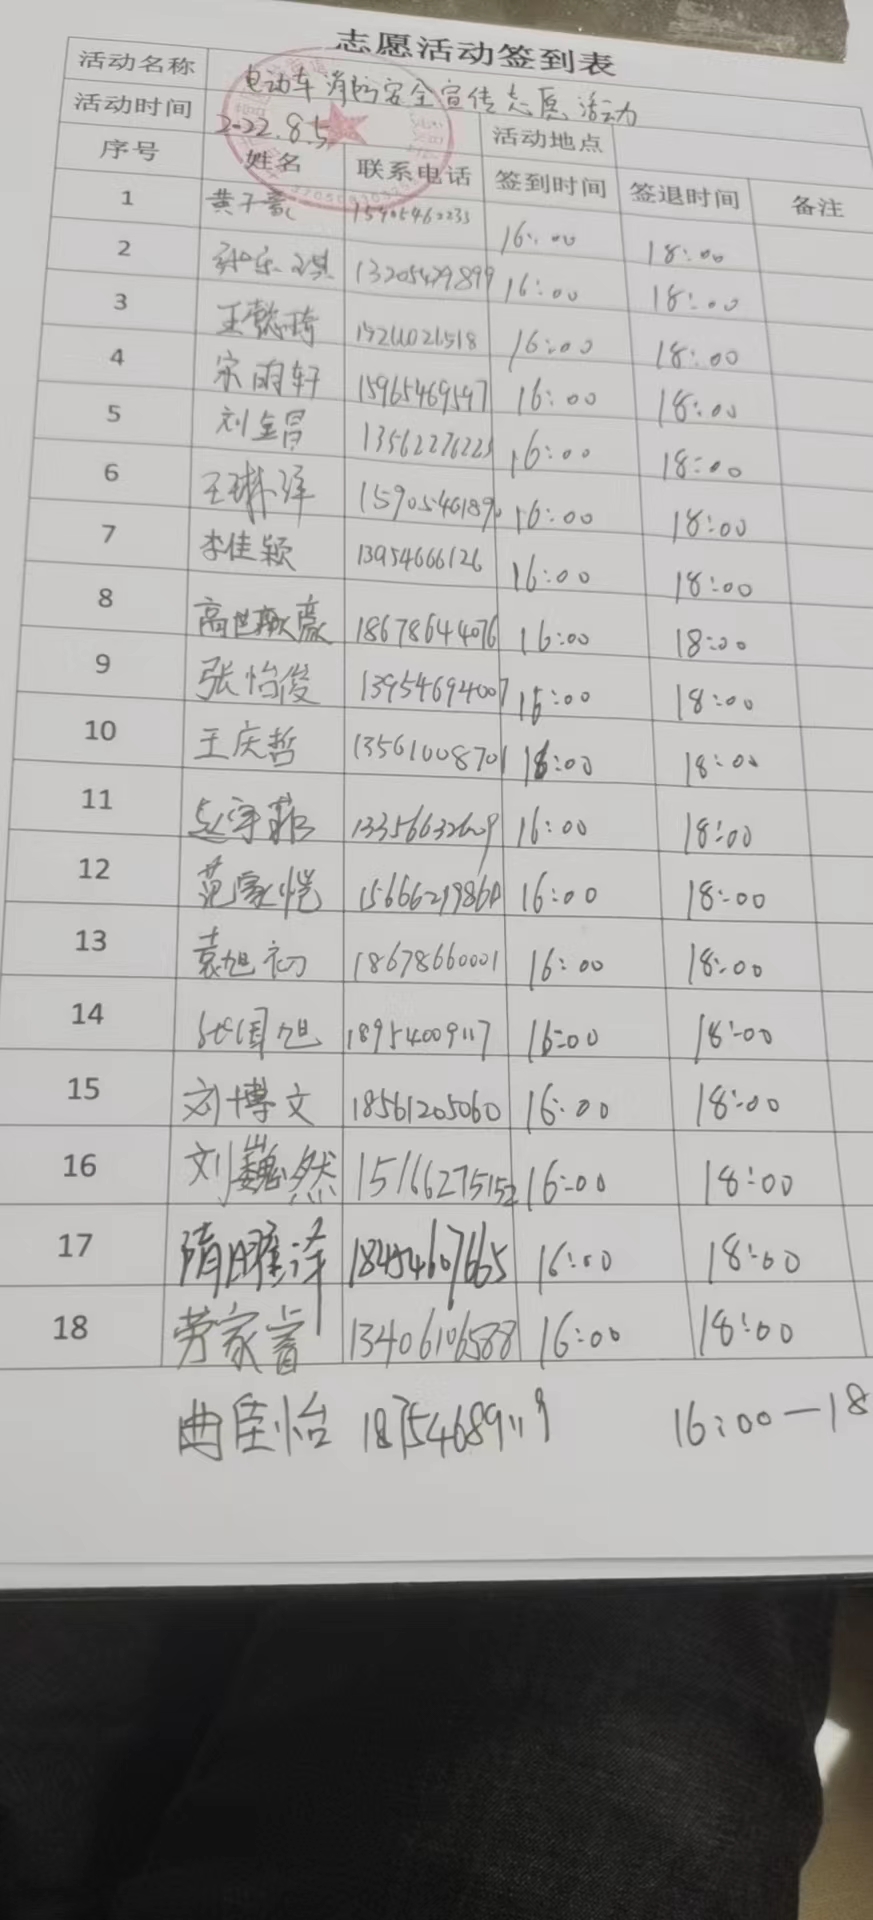 志愿活动签到表
活动名称 电动车消防安全宣传志愿活动
活动时间 2022.8.5 活动地点
序号 姓名 联系电话 签到时间 签退时间 备注
1 黄子 16:00 18:00
2 13205429899 16:00 18:00
3 王懿琦 16:00 18:00
4 宋雨轩 15965469597 16:00 18:00
5 刘金昌 13562276225 16:00 18:00
6 王琳泽 1590546189 16:00 18:00
7 李佳颖 13954666126 16:00 18:00
8 高世 18678644076 16:00 18:00
9 张怡俊 13954694007 16:00 18:00
10 王庆哲 13561008701 16:00 18:00
11 赵宇菲 13356632609 16:00 18:00
12 范家恺 16:00 18:00
13 袁旭初 18678660001 16:00 18:00
14 国旭 18954009117 16:00 18:00
15 刘博文 18561205060 16:00 18:00
16 刘巍然 15166275152 16:00 18:00
17 隋曜泽 18454607665 16:00 18:00
18 劳家睿 13406106588 16:00 18:00
曲佳怡 18754689119 16:00—18